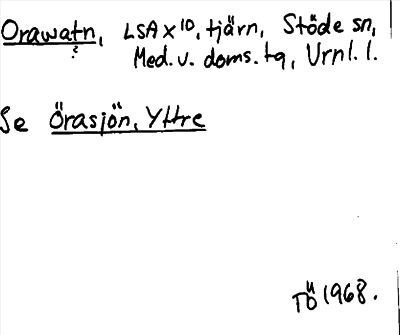 Orawatn, LSA X 10, tjärn, Stöde sn,
? Med. v. doms. tg, Urnl. l.
Se Örasjön, Yttre
TÖ 1968.